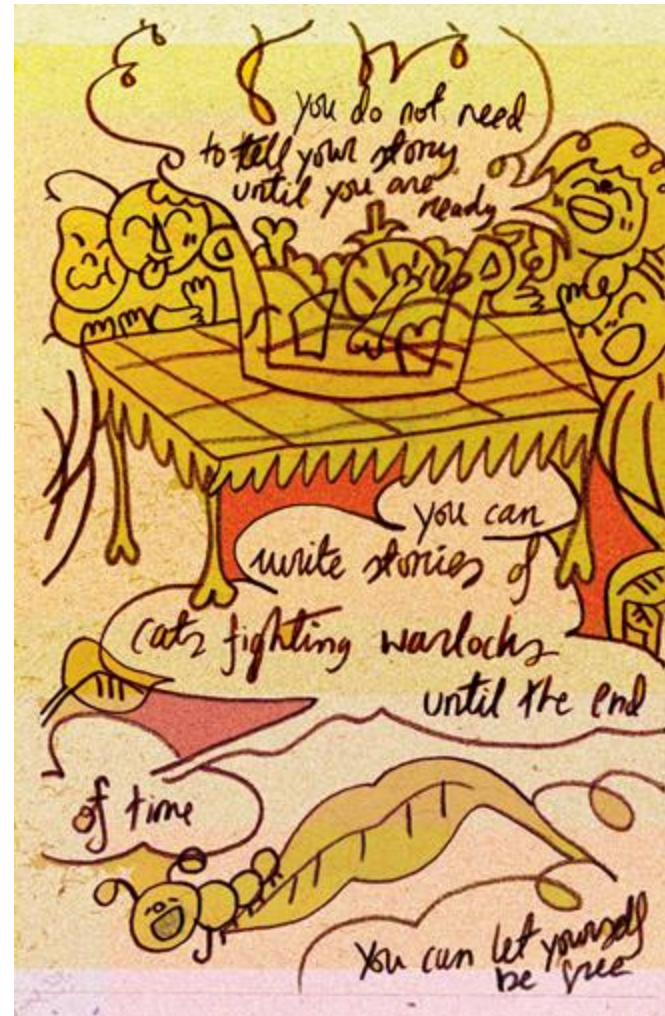 you do not need
to tell your story
until you are
ready
you can
write stories of
cats fighting warlocks
until the end
of time
you can let yourself
be free